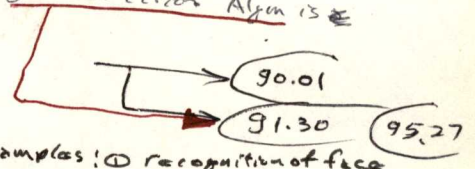 Algm is
90.01
91.30 95.27
amples: ① recognition of face